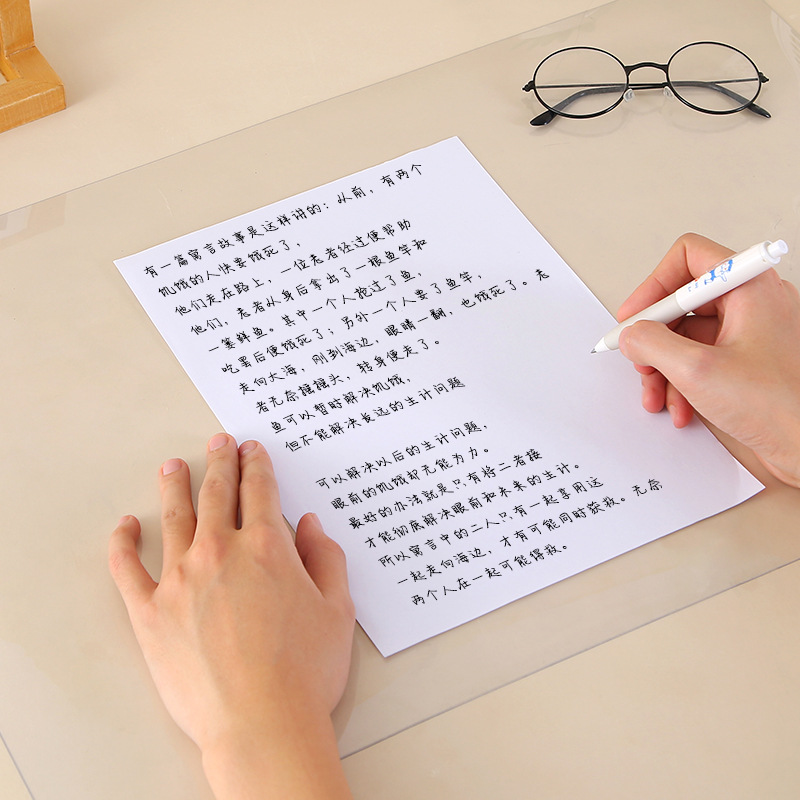 有一篇寓言故事是这样讲的：从前，有两个
饥饿的人快要饿死了，
他们走在路上，一位老者经过便帮助
他们，老者从身后拿出了一根鱼竿和
一篓鲜鱼。其中一个人抢过了鱼，
吃罢后便饿死了；另外一个人要了鱼竿，
走向大海，刚到海边，眼睛一翻，也饿死了。老
者无奈摇摇头，转身便走了。
鱼可以暂时解决饥饿，
但不能解决长远的生计问题
可以解决以后的生计问题，
眼前的饥饿却无能为力。
最好的办法就是只有将二者接
才能彻底解决眼前和未来的生计。
所以寓言中的二人只有一起享用这
一起走向海边，才有可能同时获救。无奈
两个人在一起可能得救。